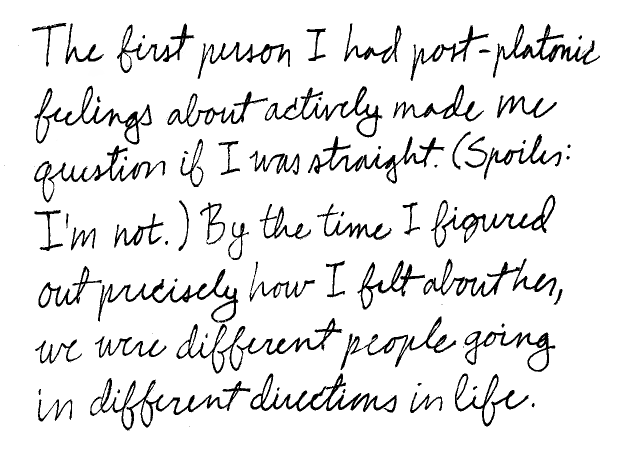 The first person I had post-platonic
feelings about actively made me
question if I was straight. (Spoiler:
I'm not.) By the time I figured
out precisely how I felt about her,
we were different people going
in different directions in life.